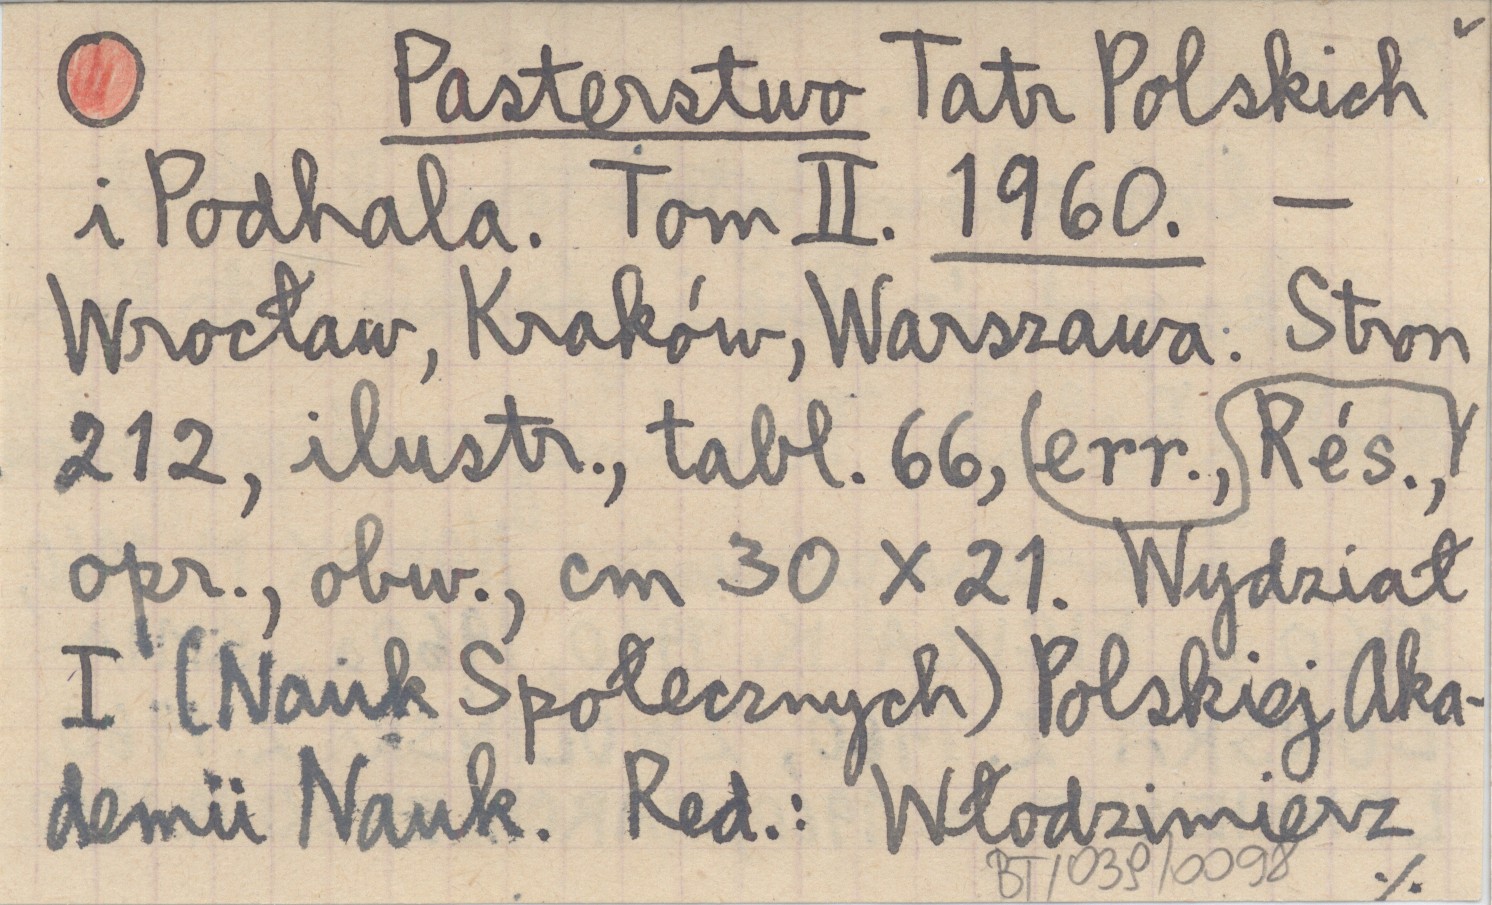 Pasterstwo Tatr Polskich
i Podhala. Tom II. 1960. —
Wrocław, Kraków, Warszawa. Stron
212, ilustr., tabl. 66, (err., Rés.,)
opr., obw., cm 30 x 21. Wydział
I (Nauk Społecznych) Polskiej Aka-
demii Nauk. Red.: Włodzimierz
BT/039/0098
./.